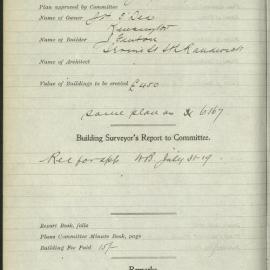 Plan approved by Committee
Name of Owner
Kensington
Name of Builder J Fenton
St Randwick
Name of Architect
Value of Buildings to be erected £450
same plan as 6167
Building Surveyor's Report to Committee.
Rec for app WB. July 31-19.
Report Book, folio
Plans Committee Minute Book, page
Building Fee Paid 15/-
Remarks